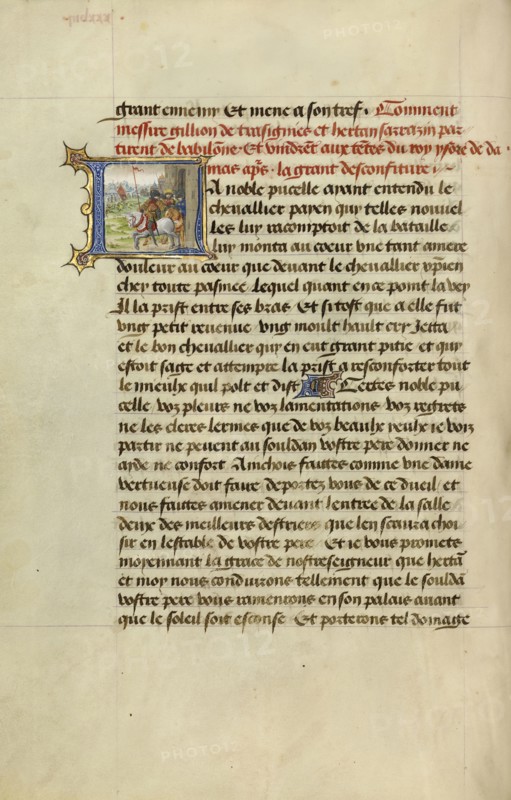 grant ennemy Et mene a son tref. Comment
messire gillion de trasignies et hertan sarrazin par
tirent de babilõne. Et vindrẽt aux tẽtes du roy ysore de da
mas apr̃s. la grant desconfiture
La noble pucelle ayant entendu le
chevallier payen quy telles nouvel
les luy racomptoit de la bataille
luy monta au coeur vne tant amere
douleur au coeur que deuant le cheuallier xp̃ien
chey toute pasmee Lequel quant en ce point la vey
Il la prist entre ses bras Et si tost que a elle fut
vng petit reuenue vng moult hault cry Jetta
et le bon cheuallier quy en eut grant pitie et quy
estoit sage et attempre la prist a resconforter tout
le mieulx quil polt et dist Certes noble pu
celle voz pleurs ne voz lamentations voz regrets
ne les cleres lermes que de voz beaulx yeulx ie vois
partir ne peuent au souldan vostre pere donner ne
ayde ne confort Ainchois faittes comme vne dame
vertueuse doit faire deportez vous de ce dueil et
nous faittes amener deuant lentree de la salle
deux des meilleurs destriers que len scaura choi
sir en lestable de vostre pere Et ie vous promets
moyennant la grace de nostreseigneur que hertã
et moy nous conduirons tellement que le souldã
vostre pere vous ramenrons en son palais auant
que le soleil soit esconse Et porterons tel domaige
PHOTO12